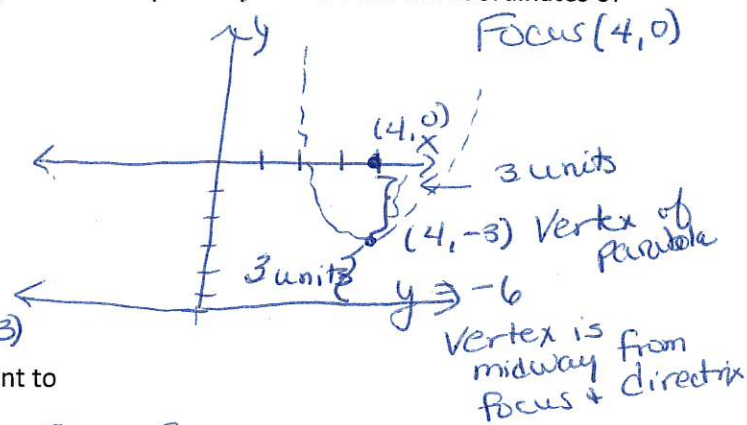 y
Focus (4,0)
(4,0)
x
3 units
(4,-3) Vertex of
parabola
3 units
y = -6
3)
Vertex is
midway from
focus + directrix
nt to